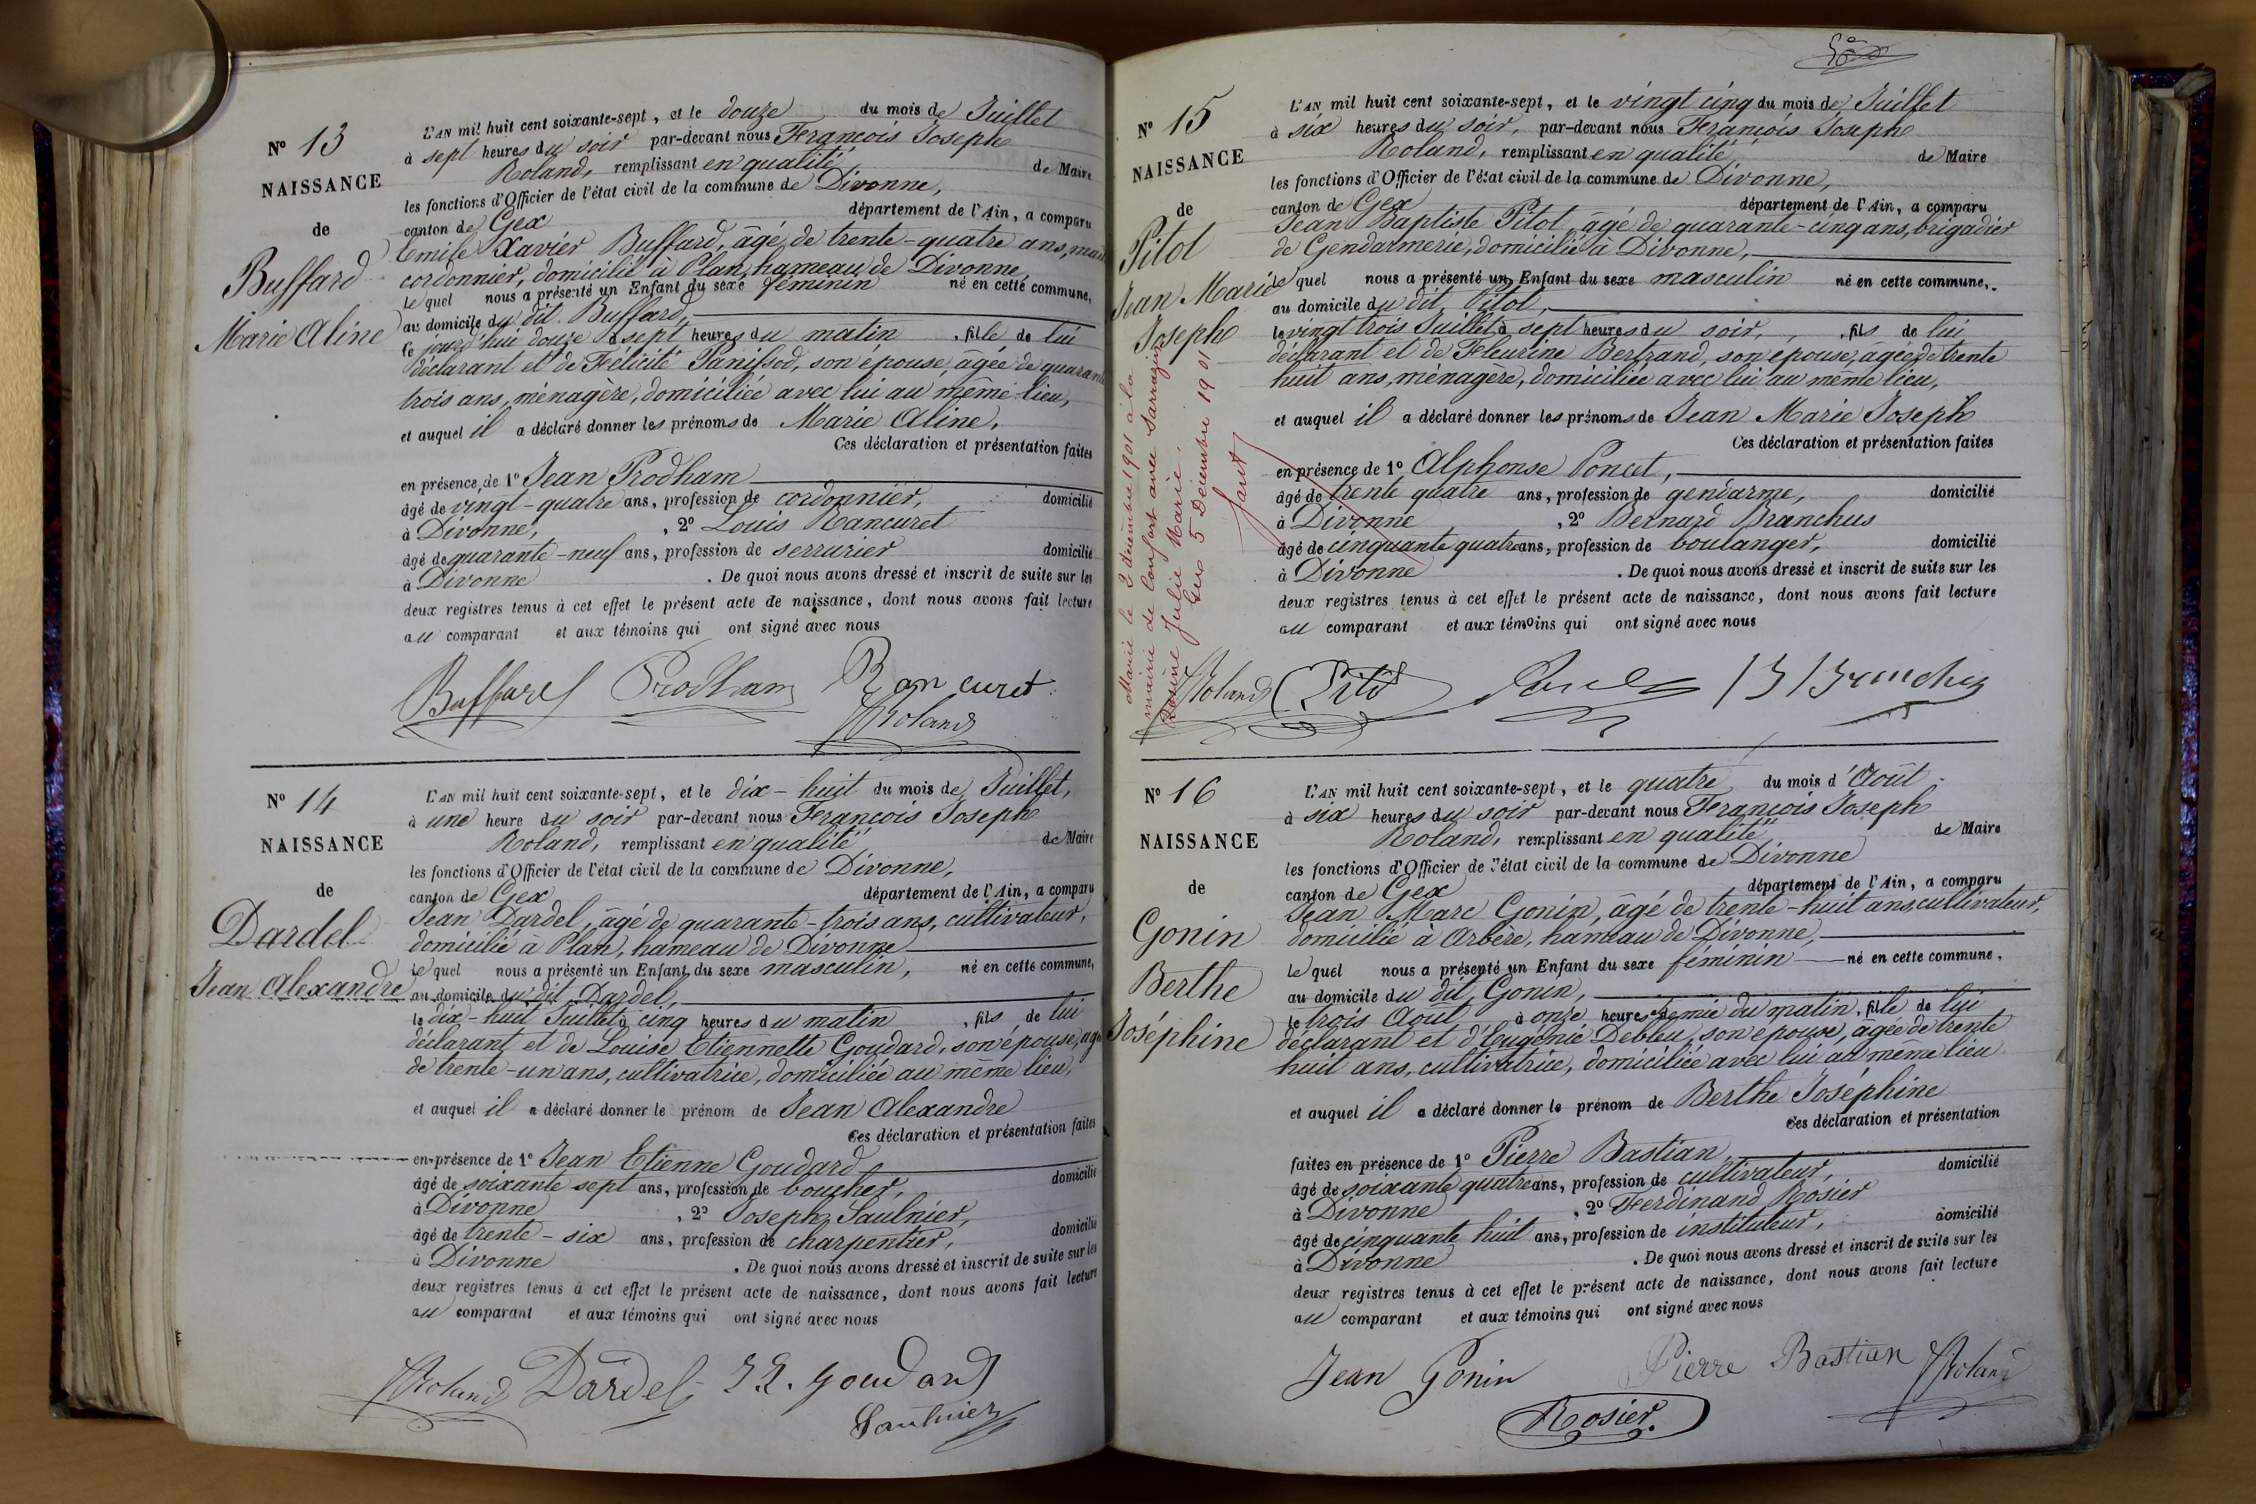 Nº 13
NAISSANCE
de
Buffard
Marie Aline
L'AN mil huit cent soixante-sept, et le douze du mois de Juillet
à sept heures du soir par-devant nous François Joseph
Roland, remplissant en qualité de Maire
les fonctions d'Officier de l'état civil de la commune de Divonne,
canton de Gex département de l'Ain, a comparu
Emile Xavier Buffard, âgé de trente-quatre ans,
cordonnier, domicilié à Plan, hameau de Divonne,
lequel nous a présenté un Enfant du sexe féminin né en cette commune,
au domicile du dit Buffard,
le jourd'hui douze à sept heures du matin, fille de lui
déclarant et de Félicité Panissod, son épouse, âgée de quarante
trois ans, ménagère, domiciliée avec lui au même lieu,
et auquel il a déclaré donner les prénoms de Marie Aline,
Ces déclaration et présentation faites
en présence de 1º Jean Prodham
âgé de vingt-quatre ans, profession de cordonnier, domicilié
à Divonne, , 2º Louis Rancuret
âgé de quarante-neuf ans, profession de serrurier domicilié
à Divonne . De quoi nous avons dressé et inscrit de suite sur les
deux registres tenus à cet effet le présent acte de naissance, dont nous avons fait lecture
au comparant et aux témoins qui ont signé avec nous
Buffard Prodham Rancuret
Roland
Nº 14
NAISSANCE
de
Dardel
Jean Alexandre
L'AN mil huit cent soixante-sept, et le dix-huit du mois de Juillet,
à une heure du soir par-devant nous François Joseph
Roland, remplissant en qualité de Maire
les fonctions d'Officier de l'état civil de la commune de Divonne,
canton de Gex département de l'Ain, a comparu
Jean Dardel, âgé de quarante-trois ans, cultivateur,
domicilié à Plan, hameau de Divonne
lequel nous a présenté un Enfant du sexe masculin, né en cette commune,
au domicile du dit Dardel,
le dix-huit Juillet à cinq heures du matin, fils de lui
déclarant et de Louise Etiennette Goudard, son épouse, âgée
de trente-un ans, cultivatrice, domiciliée au même lieu,
et auquel il a déclaré donner le prénom de Jean Alexandre
Ces déclaration et présentation faites
en présence de 1º Jean Etienne Goudard
âgé de soixante sept ans, profession de boucher, domicilié
à Divonne , 2º Joseph Saulnier,
âgé de trente-six ans, profession de charpentier, domicilié
à Divonne . De quoi nous avons dressé et inscrit de suite sur les
deux registres tenus à cet effet le présent acte de naissance, dont nous avons fait lecture
au comparant et aux témoins qui ont signé avec nous
Roland Dardel J.E. Goudard
Saulnier
Nº 15
NAISSANCE
de
Pitot
Jean Marie
Joseph
Marié le 2 décembre 1901 à la
mairie de Confort avec Sarrazin
Rosine Julie Marie.
Gex 5 Décembre 1901
L'AN mil huit cent soixante-sept, et le vingt cinq du mois de Juillet
à six heures du soir, par-devant nous François Joseph
Roland, remplissant en qualité de Maire
les fonctions d'Officier de l'état civil de la commune de Divonne,
canton de Gex département de l'Ain, a comparu
Jean Baptiste Pitot, âgé de quarante-cinq ans, brigadier
de Gendarmerie, domicilié à Divonne,
lequel nous a présenté un Enfant du sexe masculin né en cette commune,
au domicile du dit Pitot,
le vingt trois Juillet à sept heures du soir, , fils de lui
déclarant et de Fleurine Bertrand, son épouse, âgée de trente
huit ans, ménagère, domiciliée avec lui au même lieu,
et auquel il a déclaré donner les prénoms de Jean Marie Joseph
Ces déclaration et présentation faites
en présence de 1º Alphonse Poncet,
âgé de trente quatre ans, profession de gendarme, domicilié
à Divonne , 2º Bernard Branchus
âgé de cinquante quatre ans, profession de boulanger, domicilié
à Divonne . De quoi nous avons dressé et inscrit de suite sur les
deux registres tenus à cet effet le présent acte de naissance, dont nous avons fait lecture
au comparant et aux témoins qui ont signé avec nous
Roland Pitot
Nº 16
NAISSANCE
de
Gonin
Berthe
Joséphine
L'AN mil huit cent soixante-sept, et le quatre du mois d'Août
à six heures du soir par-devant nous François Joseph
Roland, remplissant en qualité de Maire
les fonctions d'Officier de l'état civil de la commune de Divonne
canton de Gex département de l'Ain, a comparu
Jean Marc Gonin, âgé de trente-huit ans, cultivateur,
domicilié à Arbère, hameau de Divonne,
lequel nous a présenté un Enfant du sexe féminin né en cette commune,
au domicile du dit Gonin,
le trois Août à onze heures demie du matin, fille de lui
déclarant et d'Eugénie Debleu, son épouse, âgée de trente
huit ans, cultivatrice, domiciliée avec lui au même lieu
et auquel il a déclaré donner le prénom de Berthe Joséphine
Ces déclaration et présentation
faites en présence de 1º Pierre Bastian,
âgé de soixante quatre ans, profession de cultivateur, domicilié
à Divonne , 2º Ferdinand Rosier
âgé de cinquante huit ans, profession de instituteur, domicilié
à Divonne . De quoi nous avons dressé et inscrit de suite sur les
deux registres tenus à cet effet le présent acte de naissance, dont nous avons fait lecture
au comparant et aux témoins qui ont signé avec nous
Jean Gonin Pierre Bastian Roland
Rosier